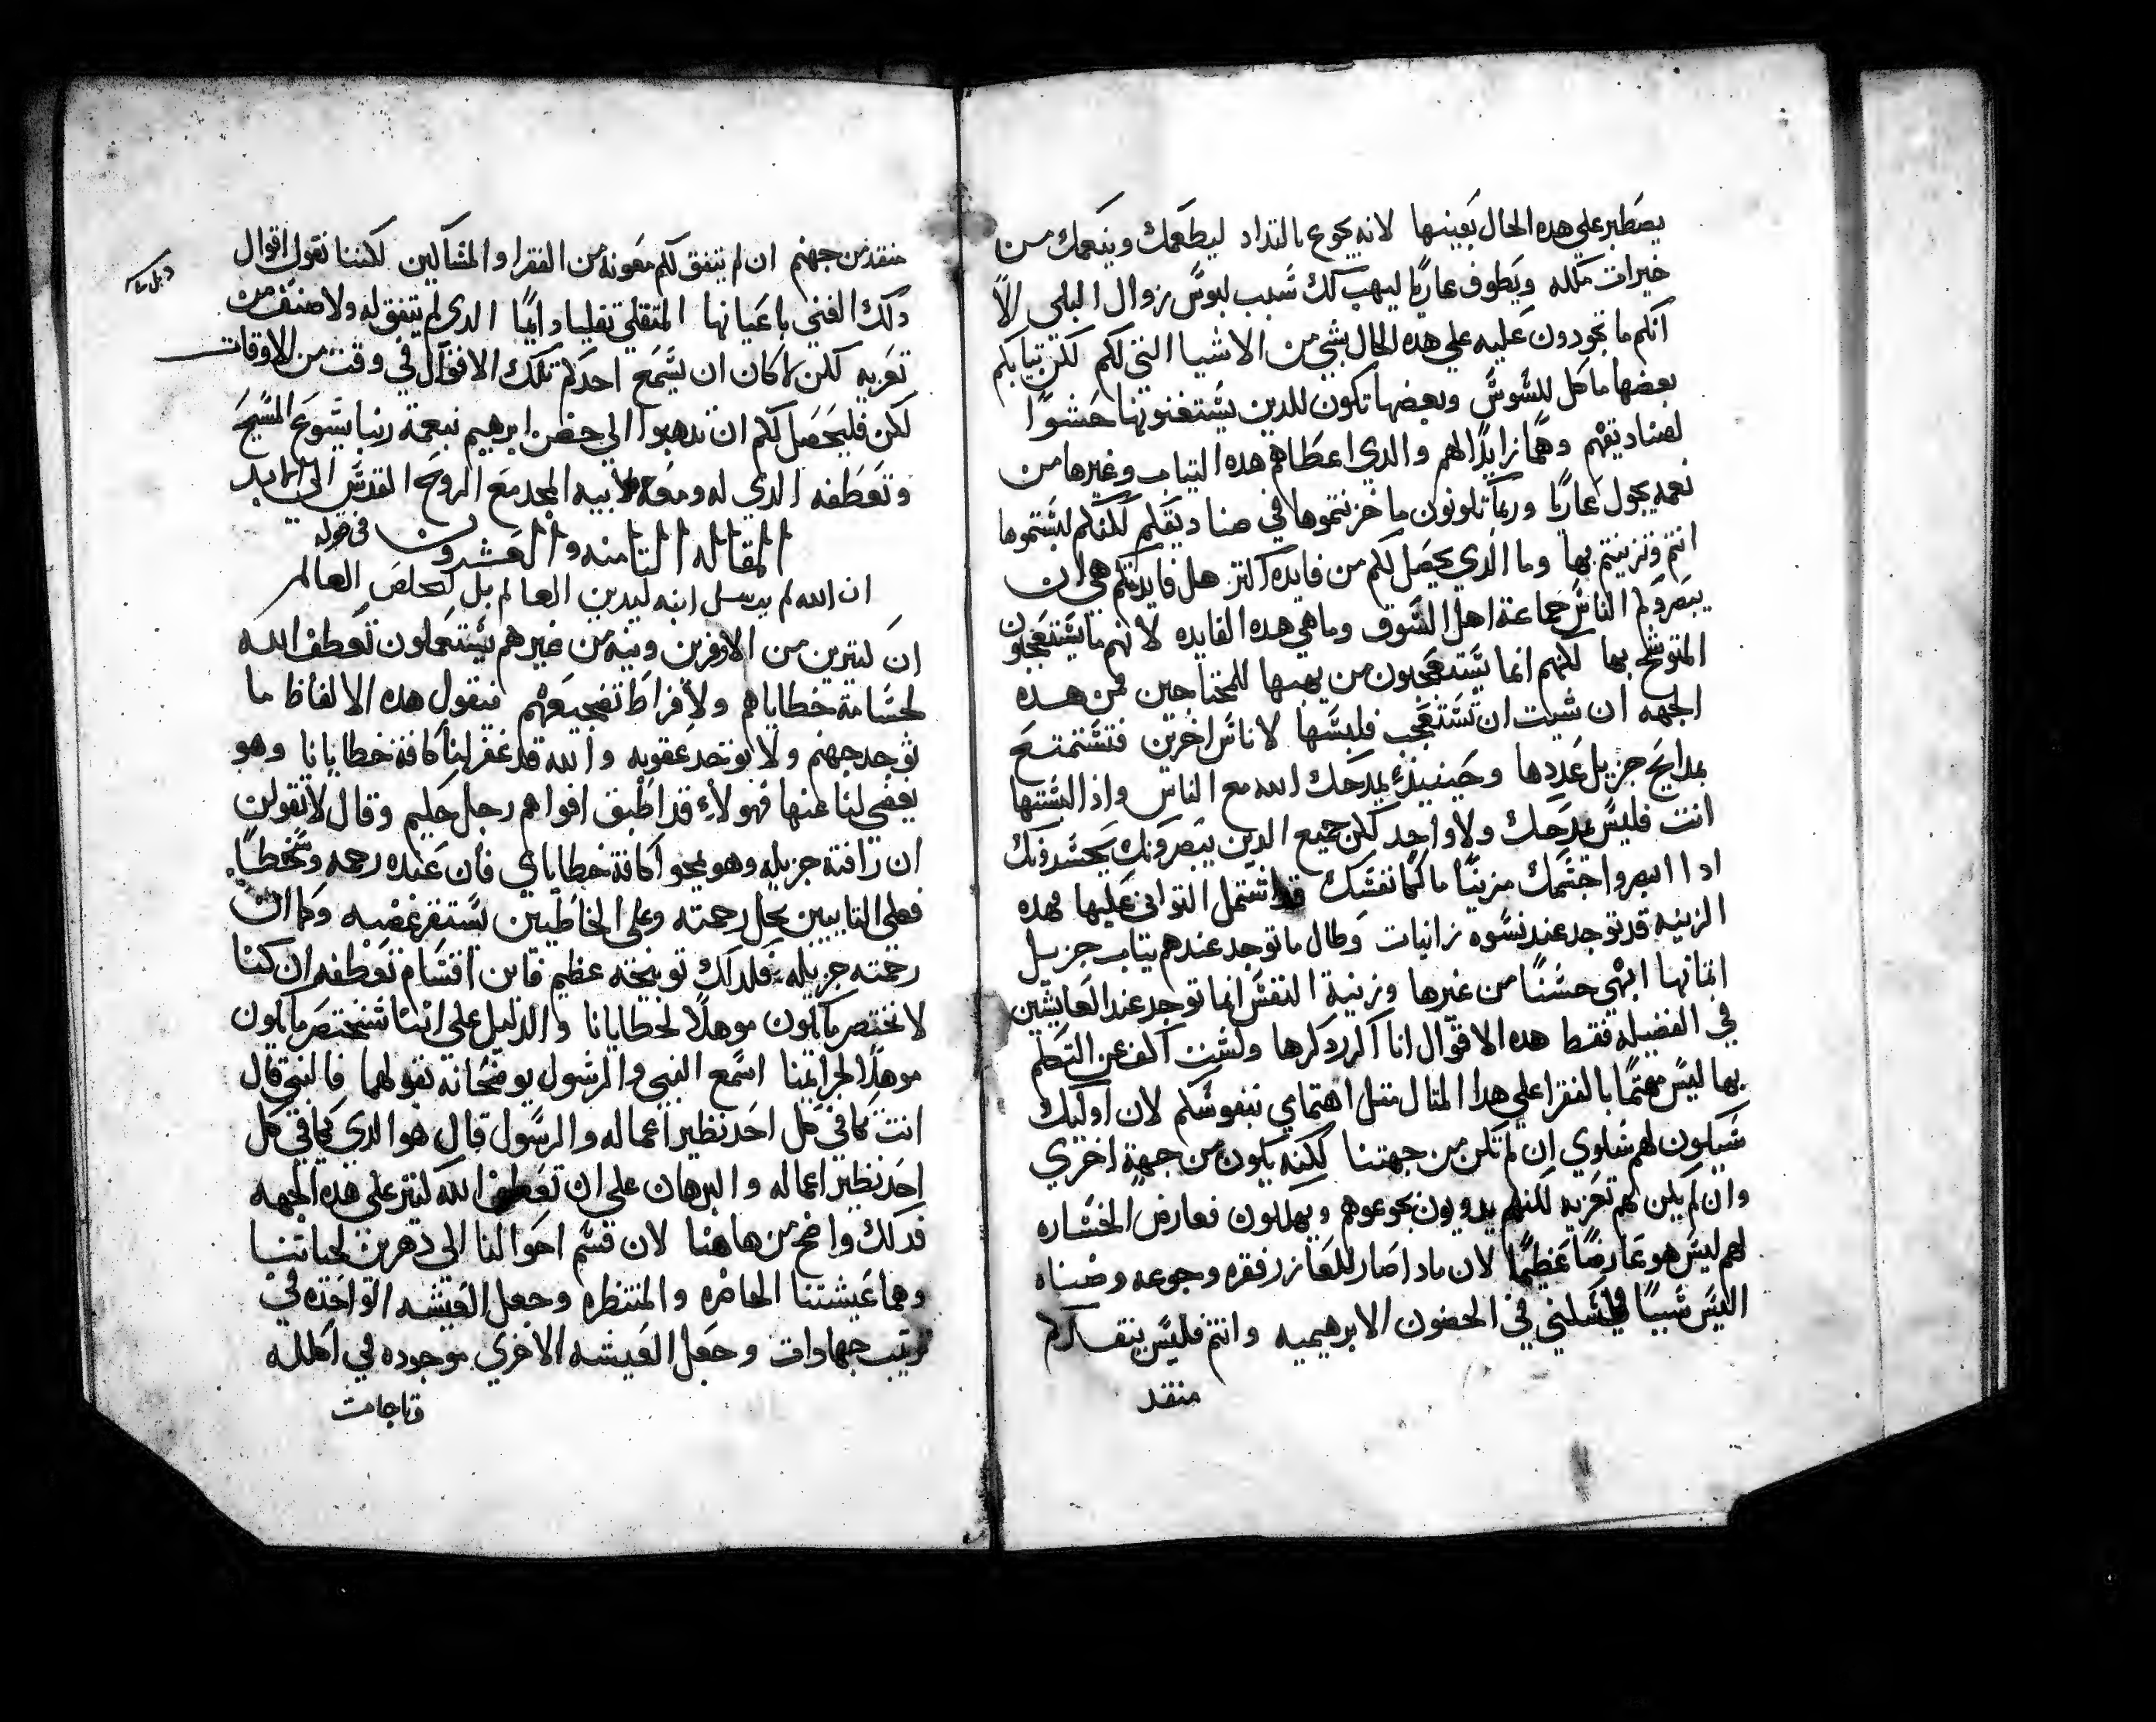 يصطبر علي هده الحال بعينها لانه يجوع بالتداد ليطعمك وينعمك من
خيرات ملكه ويطوف عاريا ليهب لك سبب لبوس زوال البلي الا
انكم ما تجودون عليه علي هده الحال بشي من الاشيا التي لكم لكن تيابكم
بعضها ماكل للسوس وبعضها تكون للدين يستغنونها حشوا
لصناديقهم وهما زايدا لهم والدي اعطاهم هده التياب وغيرها من
نعمه يجول عاريا وربما تلونون ما خزنتموها في صناديقكم لكنكم لبستموها
انتم وتزينتم بها وما الدي يحصل لكم من فايده اكتر هل فايدتكم هي ان
يبصركم الناس جماعة اهل السوق وما هي هده الفايده لانهم ما يستعجبون
المتوشح بها لكنهم انما يستعجبون من يهبها للمحتاجين فمن هده
الجهه ان شيت ان تستعجب فلبسها لاناس اخرين فتستمتع
بمدايح جزيل عددها وحينيذ يمدحك الله مع الناس واذا لبستها
انت فليس يمدحك ولا واحد لكن جميع الدين يبصرونك يحسدونك
ادا ابصروا جسمك مزينا ما كما نفسك قد اشتمل التواني عليها فهده
الزينه قد توجد عند نسوه زانيات وطال ما توجد عندهم تياب جزيل
اتمانها ابهي حسنا من غيرها وزينة النفس انما توجد عند العايشين
في الفضيله فقط هده الاقوال انا اكرر دكرها ولست اكف عن التكلم
بها ليس مهتما بالفقرا علي هدا المتال متل اهتمامي بنفوسكم لان اوليك
سيكون لهم سلوي ان لم تكن من جهتنا لكنه يكون من جهة اخري
وان لم يكن لهم تعزيه لكنهم يدوبون بجوعهم ويهلكون فعارض الخساره
لهم ليس هو عارضا عظيما لان مادا ضار للعازر فقره وجوعه وضناه
اليس سببا في سكني في الحضون الابرهيميه وانتم فليس ينقدكم
منقد
منقد من جهنم ان لم يتفق لكم معونه من الفقرا والمساكين لكننا نقول اقوال
دلك الغني باعيانها المتقلي تقليا دايما الدي لم يتفق له ولا صنف من
تعزيه لكن لا كان ان يسمع احدكم تلك الاقوال في وقت من الاوقات
لكن فليحصل لكم ان تدهبوا الي حضن ابرهيم بنعمة ربنا يسوع المسيح
وتعطفه الدي له ومعه لابيه المجد مع الروح القدس الي الابد
المقاله التامنه والعشرون في قوله
ان الله لم يرسل ابنه ليدين العالم بل ليخلص العالم
ان كتيرين من الاوفرين ونيه من غيرهم يستعملون تعطف الله
لجسامة خطاياهم ولافراط تضجيعهم فيقول هده الالفاظ ما
توجد جهنم ولا يوجد عقوبه والله قد غفر لنا كافة خطايانا وهو
يغضي لنا عنها فهولاء قد اطبق افواههم رجل حليم وقال لا تقولن
ان رافته جزيله وهو يمحوا كافة خطاياي فان عنده رحمه وسخطا
فعلي التايبين يحل رحمته وعلي الخاطيين يستقر غضبه وكما ان
رحمته جزيله فكدلك توبيخه عظيم فاين اقسام تعطفه ان كنا
لا نختصر ما يكون موهلا لخطايانا والدليل علي اننا سنختصر ما يكون
موهلا لجرايمنا اسمع النبي والرسول يوضحانه بقولهما فالنبي قال
انت تكافي كل احد نظير اعماله والرسول قال هو الدي يكافي كل
احد نظير اعماله والبرهان علي ان تعطف الله كتير علي هده الجهه
فدلك واضح من هاهنا لان قسم احوالنا الي دهرين لحياتنا
وهما عيشتنا الحاضره والمنتظره وجعل العيشه الواحده في
ترتيب جهادات وجعل العيشه الاخري موجوده في اكلله
وتاجات